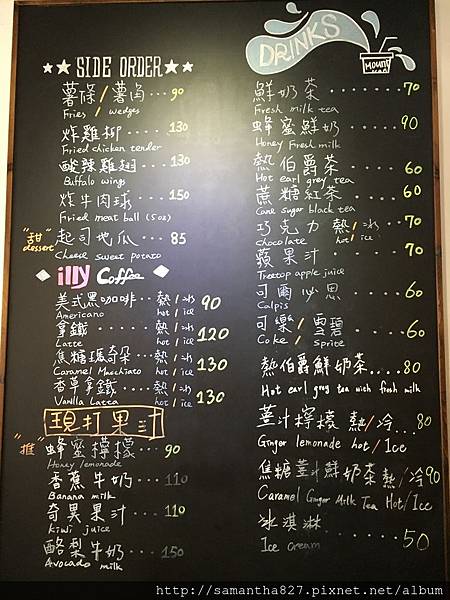 ★★ SIDE ORDER ★★
薯條/薯角... 90
Fries / wedges
炸雞柳... 130
Fried chicken tender
酸辣雞翅... 130
Buffalo wings
炸牛肉球... 150
Fried meat ball (5oz)
"甜" 起司地瓜... 85
dessert Cheese sweet potato
illy Coffee
美式黑咖啡..熱/冰 90
Americano hot / ice
拿鐵......熱/冰 120
Latte hot / ice
焦糖瑪奇朵..熱/冰 130
Caramel Macchiato hot / ice
香草拿鐵...熱/冰 130
Vanilla Latta hot / ice
現打果汁
"推" 蜂蜜檸檬... 90
Honey lemonade
香蕉牛奶... 110
Banana milk
奇異果汁... 110
kiwi juice
酪梨牛奶... 150
Avocado milk
DRINKS
鮮奶茶....... 70
Fresh milk tea
蜂蜜鮮奶..... 90
Honey Fresh milk
熱伯爵茶..... 60
Hot earl grey tea
蔗糖紅茶..... 60
Cane sugar black tea
巧克力 熱/冰... 70
chocolate hot / ice
蘋果汁...... 70
Treetop apple juice
可爾必思..... 60
Calpis
可樂/雪碧.... 60
Coke / Sprite
熱伯爵鮮奶茶.... 80
Hot earl grey tea with fresh milk
薑汁檸檬 熱/冷.. 80
Ginger lemonade hot / Ice
焦糖薑汁鮮奶茶熱/冷90
Caramel Ginger Milk Tea Hot/Ice
冰淇淋...... 50
Ice cream
http://samantha827.pixnet.net/album